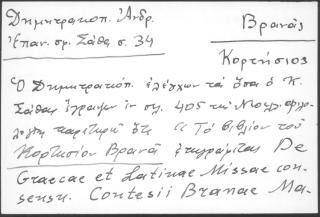 Δημητρακοπ. Ἀνδρ.
Ἐπαν. σφ. Σάθα σ. 34
Βρανᾶς
Κορτήσιος
Ὁ Δημητρακόπ. ἐλέγχων τὰ ὅσα ὁ Κ.
Σάθας ἔγραψεν ἐν σελ. 405 τῆς Νεοελ. φιλο-
λογίας παρατηρεῖ ὅτι "Τὸ βιβλίον τοῦ
Κορτησίου Βρανᾶ ἐπιγράφεται De
Graecae et Latinae Missae con-
sensu. Contesii Branae Ma-